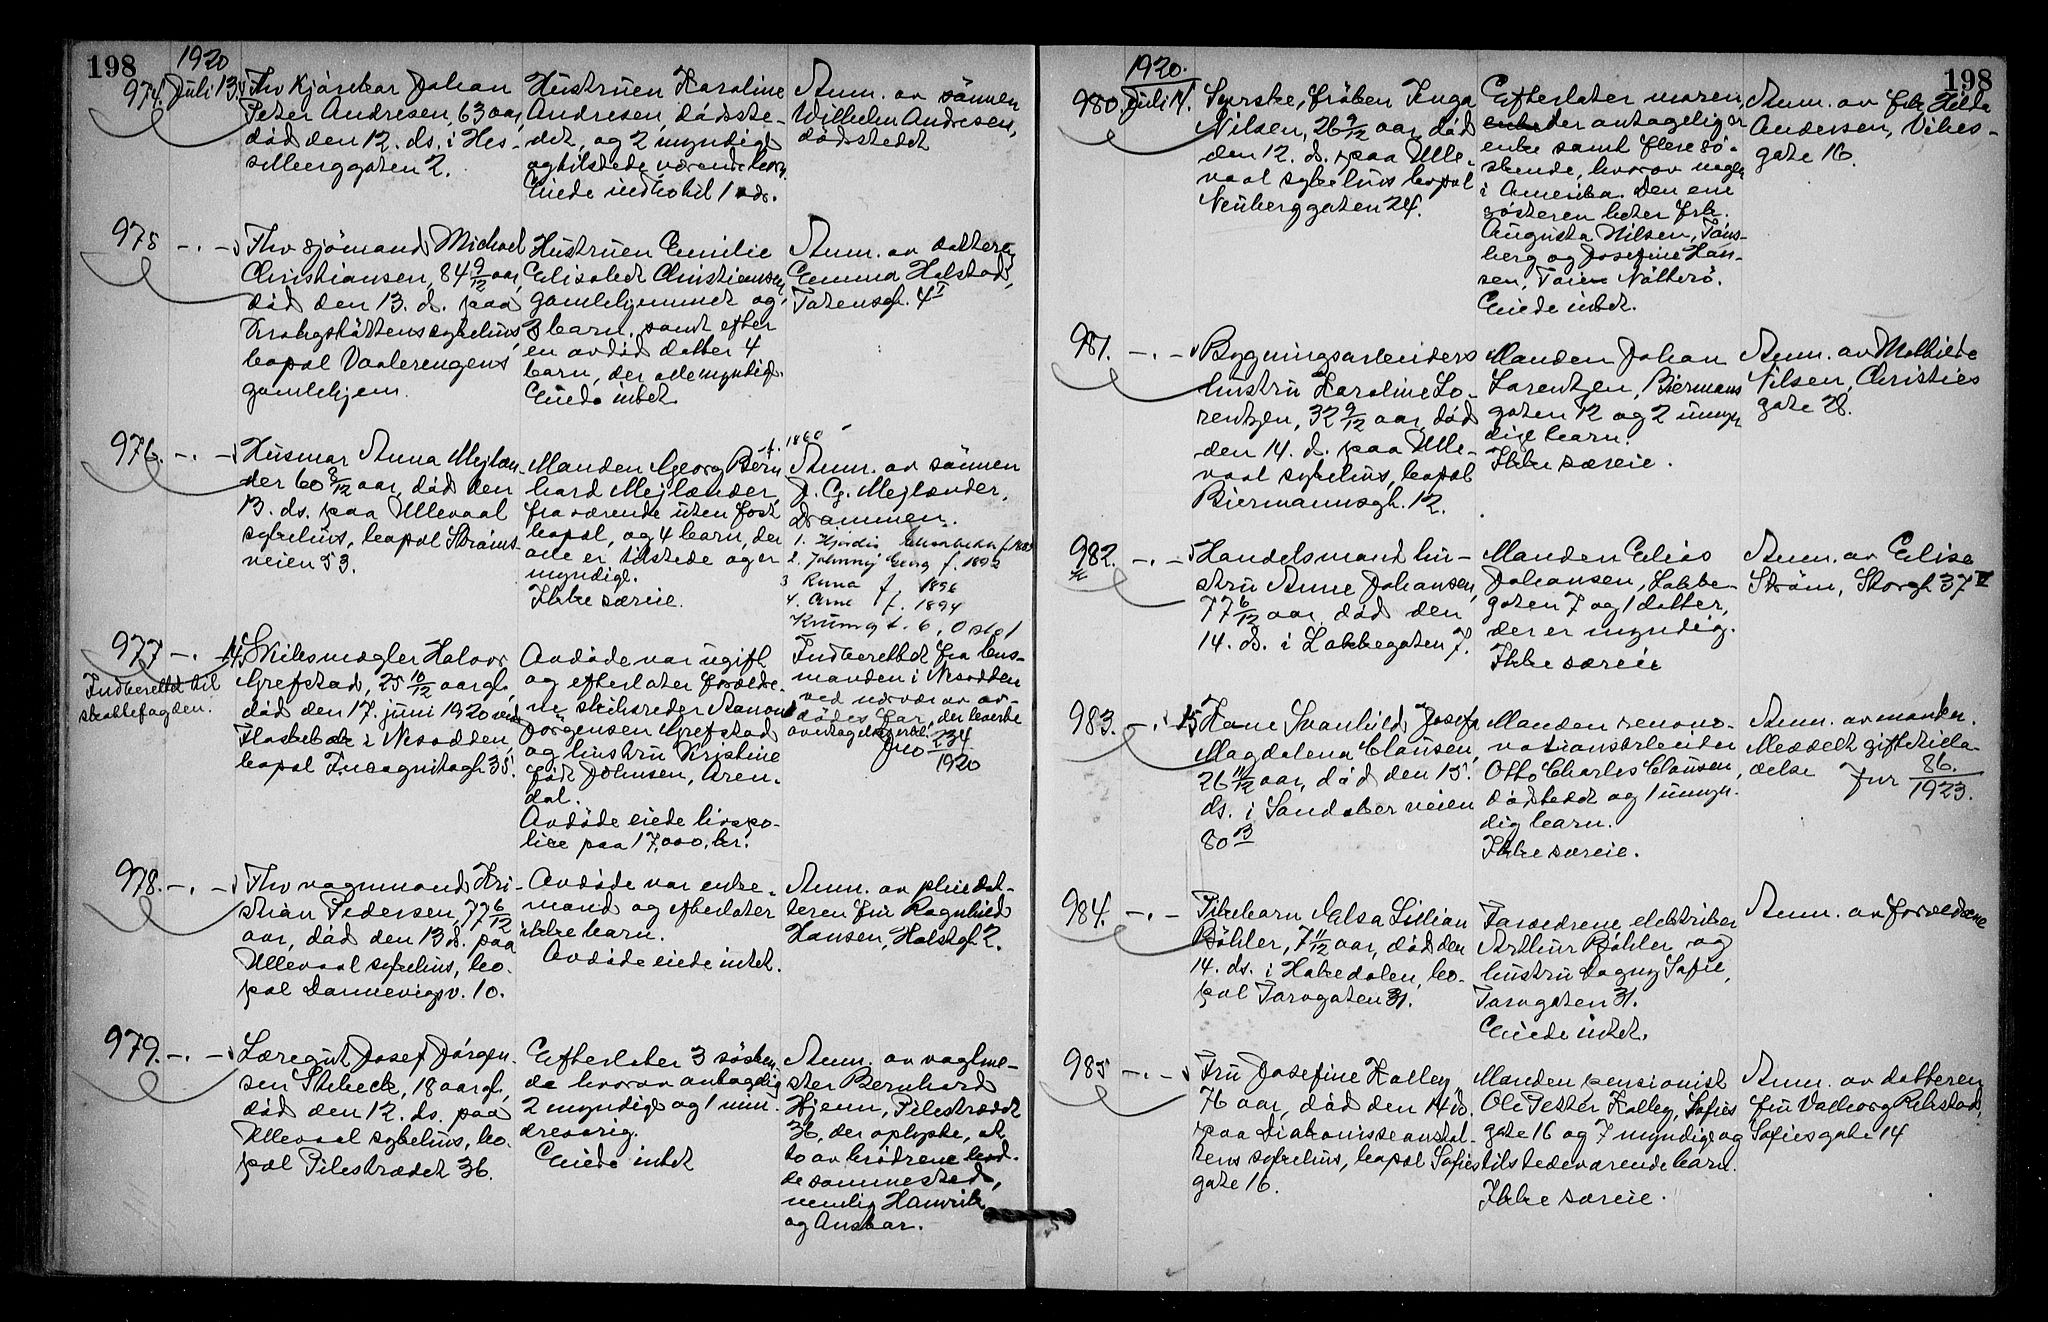 198
1920
974. Juli 13.
Fhv kjørekar Johan
Peter Andresen, 63 aar,
død den 12. ds. i Hes-
selberggaten 2.
Hustruen Karoline
Andresen, dødsste-
det, og 2 myndige
og tilstedeværende barn.
Eiede indbo til 1 
Anm. av sønnen
Wilhelm Andresen,
dødsstedet
975 -.-
Fhv sjømand Michael
Christiansen, 84 9/12 aar,
død den 13. d. paa
Krohgstøttens sykehus,
bopæl Vaalerengens
gamlehjem.
Hustruen Emilie
Elisabet Christiansen,
gamlehjemmet og
3 barn, samt efter
en avdød datter 4
barn, der alle myndige.
Eiede intet.
Anm. av datteren
Emma Halstad,
Totensgt. 4 I
976. -.-
Husmor Anna Mejlæn-
der 60 8/12 aar, død den
13. ds. paa Ullevaal
sykehus, bopæl Strøms-
veien 53.
Manden Georg Bern-
hard Mejlænder,
fraværende uten fast
bopæl, og 4 barn, der
alle er tilstede og er
myndige.
Ikke særeie.
f. 1860
Anm. av sønnen
J. G. Mejlænder,
Drammen.
1. Hjørdis
2. Johnny Georg f. 1892
3 Runa f 1896
4. Arne f. 1894
Krumgt. 6, Oslo
977 -.- 14.
Indberettet til
skattefogden.
Skibsmægler Halvor
Grefstad, 25 10/12 aar gl.,
død den 17. juni 1920 ved
Flaskebæk i Nesodden,
bopæl Incognitogt. 35.
Avdøde var ugift
og efterlater foreldre-
ne skibsreder Aanon
Jørgensen Grefstad
og hustru Kristine
født Johnsen, Aren-
dal.
Avdøde eiede livspo-
lice paa 17.000. kr.
Indberettet fra lens-
manden i Nesodden
ved nærvær av av-
dødes far, der
Jno 234
1920
978. -.-
Fhv vognmand Kri-
stian Pedersen, 77 6/12
aar, død den 13 d. paa
Ullevaal sykehus, bo-
pæl Dannevigsv. 10.
Avdøde var enke-
mand og efterlater
ikke barn.
Avdøde eiede intet.
Anm. av pleiedat-
teren fru Ragnhild
Hansen, Holstgt. 2.
979. -.-
Læregut Josef Jørgen-
sen Stebeck, 18 aar gl.,
død den 12. ds. paa
Ullevaal sykehus, bo-
pæl Pilestrædet 36.
Efterlater 3 søsken-
de hvorav antagelig
2 myndige og 1 min-
dreaarig.
Eiede intet
Anm. av vagtme-
ster Bernhard
Hjenn, Pilestrædet
36, der oplyste, at
to av brødrene bod-
de sammesteds,
nemlig Hanvik
og Anskar.
198
1920.
980. Juli 14.
Syerske, frøken Inga
Nilsen, 26 9/12 aar, død
den 12. d. paa Ulle-
vaal sykehus bopæl
Neuberggaten 24.
Efterlater moren,
der antagelig er
enke samt flere sø-
skende, hvorav nogen
i Amerika. Den ene
søsteren heter frk.
Augusta Nilsen, Tøns-
berg og Josefine Han-
sen, Nøtterø.
Eiede intet.
Anm. av frk Hilda
Andersen, Vibes-
gate 16.
981. -.-
Bygningsarbeiders
hustru Karoline Lo-
rentzen, 32 9/12 aar, død
den 14. d. paa Ulle-
vaal sykehus, bopæl
Biermannsgt. 12.
Manden Johan
Lorentzen, Biermans
gaten 12 og 2 umyn-
dige barn.
Ikke særeie.
Anm. av Mathilde
Nilsen, Christies
gate 28.
982. -.-
Handelsmand hu-
stru Anne Johansen,
77 6/12 aar, død den
14. ds. i Lakkegaten 7.
Manden Elias
Johansen, Lakke-
gaten 7 og 1 datter,
der er myndig.
Ikke særeie
Anm. av Elise
Strøm, Storgt 37 V
983. -.- 15
Kone Svanhild Josefa
Magdalena Clausen,
26 11/12 aar, død den 15.
ds. i Sandakerveien
80 B
Manden reno-
vationsarbeider
Otto Charles Clausen,
dødstedet og 1 umyn-
dig barn.
Ikke særeie.
Anm. av manden.
Meddelt giftetilla-
delse Jnr 86.
1923.
984. -.-
Pikebarn Aasa Lillian
Bøhler, 7 11/12 aar, død den
14. ds. i Hakedalen, bo-
pæl Torvgaten 31.
Forældrene elektriker
Arthur Bøhler og
hustru Dagny Sofie,
Torvgaten 31.
Eiede intet.
Anm. av forældrene
985 -.-
Fru Josefine Kolley
76 aar, død den 14 ds.
paa Diakonisseanstal-
tens sykehus, bopæl Sofies
gate 16.
Manden pensionist
Ole Petter Kolley, Sofies
gate 16 og 7 myndige og
tilstedeværende barn.
Ikke særeie.
Anm. av datteren
fru Valborg Rikstad,
Sofiesgate 14